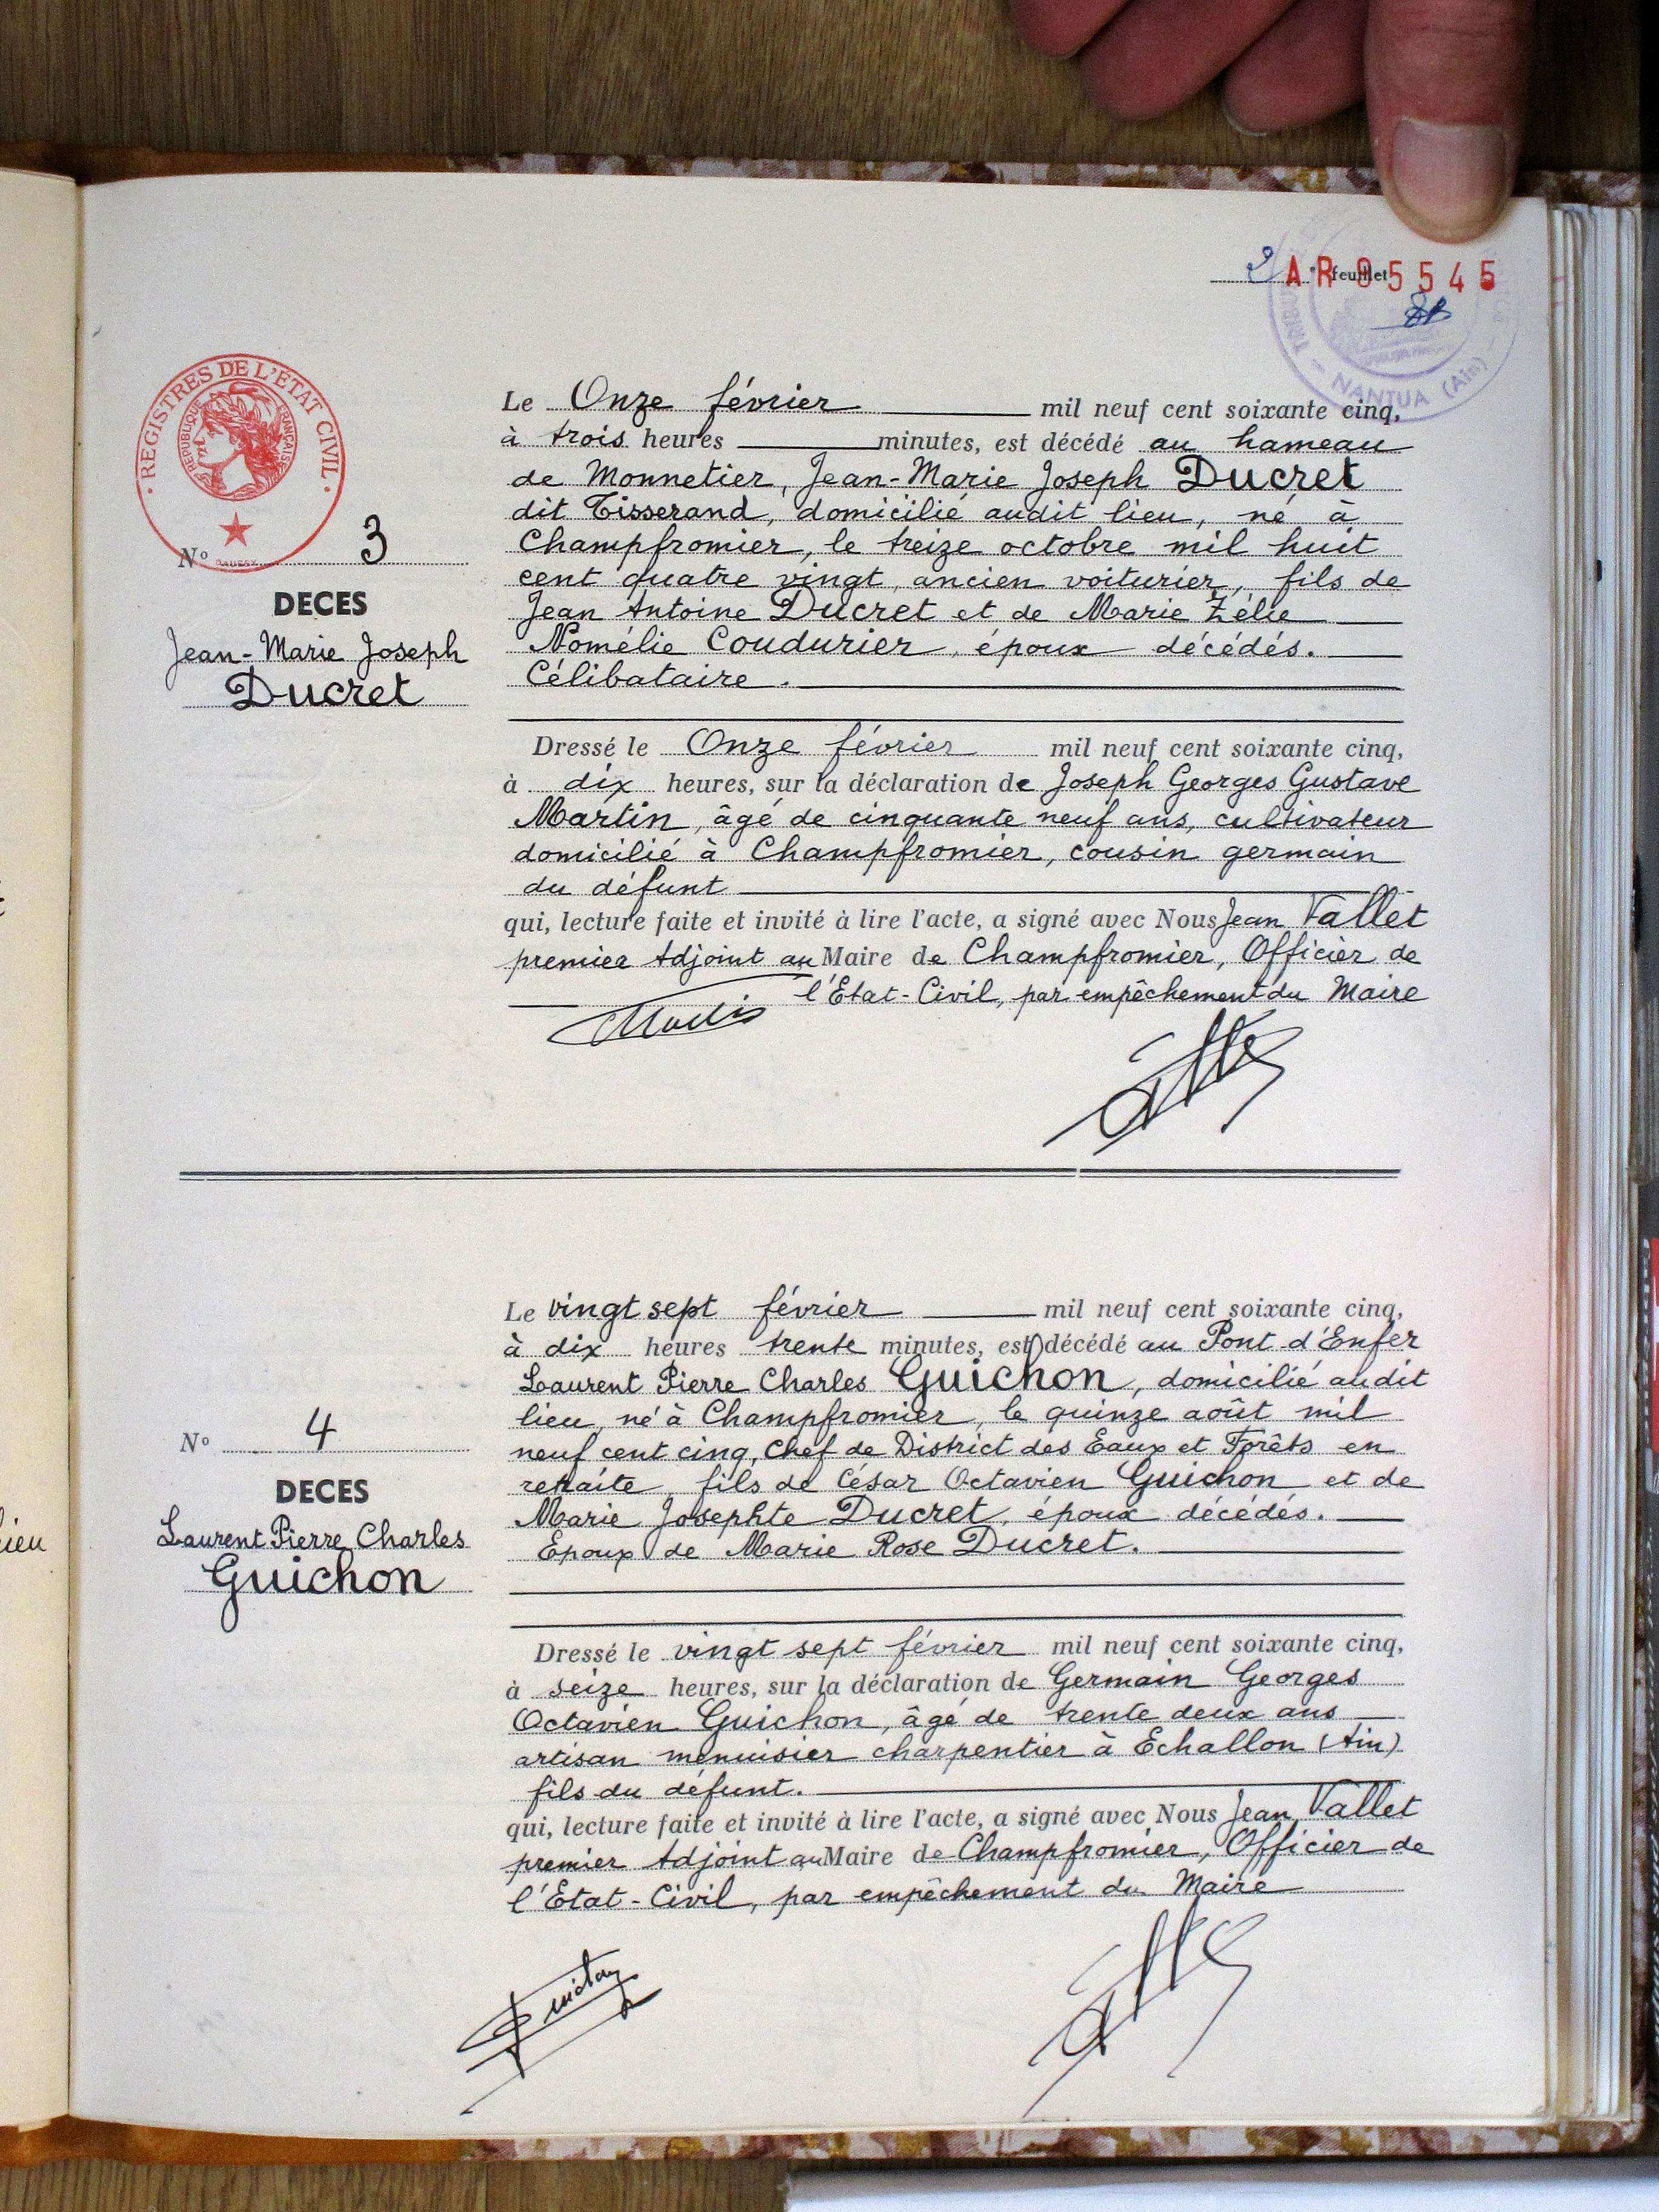 2 feuillet
AR 05545
NANTUA (Ain)
· REGISTRES DE L'ÉTAT CIVIL ·
REPUBLIQUE FRANÇAISE
N° 3
DECES
Jean-Marie Joseph
Ducret
Le Onze février mil neuf cent soixante cinq,
à trois heures minutes, est décédé au hameau
de Monnetier, Jean-Marie Joseph Ducret
dit Tisserand, domicilié audit lieu, né à
Champfromier, le treize octobre mil huit
cent quatre vingt, ancien voiturier, fils de
Jean Antoine Ducret et de Marie Zélie
Nomélie Coudurier, époux décédés.
Célibataire.
Dressé le Onze février mil neuf cent soixante cinq,
à dix heures, sur la déclaration de Joseph Georges Gustave
Martin, âgé de cinquante neuf ans, cultivateur
domicilié à Champfromier, cousin germain
du défunt
qui, lecture faite et invité à lire l'acte, a signé avec Nous Jean Vallet
premier Adjoint au Maire de Champfromier, Officier de
l'Etat-Civil, par empêchement du Maire
N° 4
DECES
Laurent Pierre Charles
Guichon
Le vingt sept février mil neuf cent soixante cinq,
à dix heures trente minutes, est décédé au Pont d'Enfer
Laurent Pierre Charles Guichon, domicilié audit
lieu, né à Champfromier, le quinze août mil
neuf cent cinq, Chef de District des Eaux et Forêts en
retraite, fils de César Octavien Guichon et de
Marie Josephte Ducret, époux décédés.
Epoux de Marie Rose Ducret.
Dressé le vingt sept février mil neuf cent soixante cinq,
à seize heures, sur la déclaration de Germain Georges
Octavien Guichon, âgé de trente deux ans
artisan menuisier charpentier à Echallon (Ain)
fils du défunt.
qui, lecture faite et invité à lire l'acte, a signé avec Nous Jean Vallet
premier Adjoint au Maire de Champfromier, Officier de
l'Etat-Civil, par empêchement du Maire
Guichon